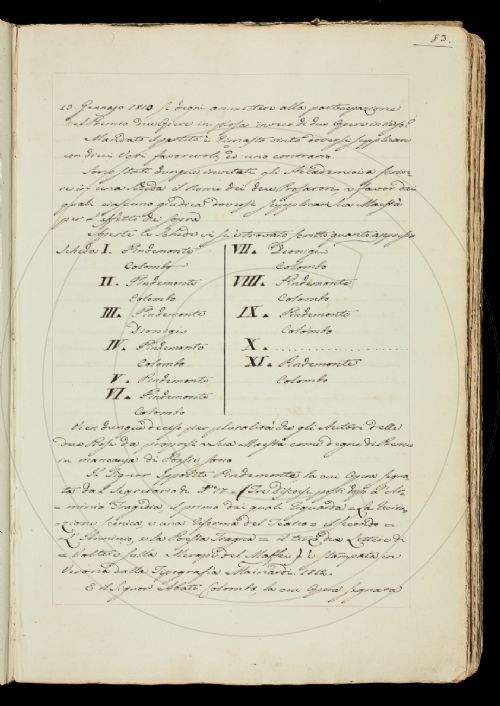 83.
13. Gennajo 1813 si degni ammettere alla partecipazione
del Premio due Opere in prosa invece di due Opere in verso.
Mandato il partito è rimasto vinto doversi supplicare
con dieci Voti favorevoli, ed uno contrario.
Sono stati dunque invitati gli Accademici a scrive-
re in una scheda il Nome dei due Prosatori a favor dei
quali ciascuno giudica doversi supplicare Sua Maestà
per l'effetto di sopra
Aperte le schede vi si è trovato scritto quanto appresso
Scheda I. Pindemonte
Colombo
II. Pindemonte
Colombo
III. Pindemonte
Dionigi
IV. Pindemonte
Colombo
V. Pindemonte
VI. Pindemonte
Colombo
VII. Dionigi
Colombo
VIII. Pindemonte
Colombo
IX. Pindemonte
Colombo
X. ....................
XI. Pindemonte
Colombo
Vien dunque deciso per pluralità che gli Autori delle
due Prose da proporsi a Sua Maestà come degne di Premio
in mancanza di Poesie sono
Il Signor Ippolito Pindemonte la cui Opera segna-
ta dal Segretario di N.° = (Tre discorsi posti dopo l'Ar-
minio Tragedia, il primo dei quali riguarda = La Recita-
zione scenica e una riforma del Teatro = il secondo =
L'Arminio, e la Poesia Tragica = il terzo due Lettere di
Voltaire sulla Merope del Maffei) è stampata in
Verona dalla Tipografia Mainardi 1812.
E il Signor Abate Colombo, la cui Opera segnata